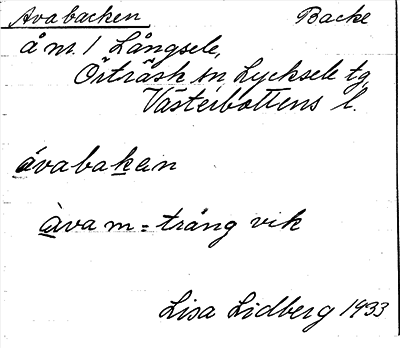 Avabacken Backe
å m. 1 Långsele,
Örträsk sn Lycksele tg
Västerbottens l.
ávabakɐn
àva m = trång vik
Lisa Lidberg 1933